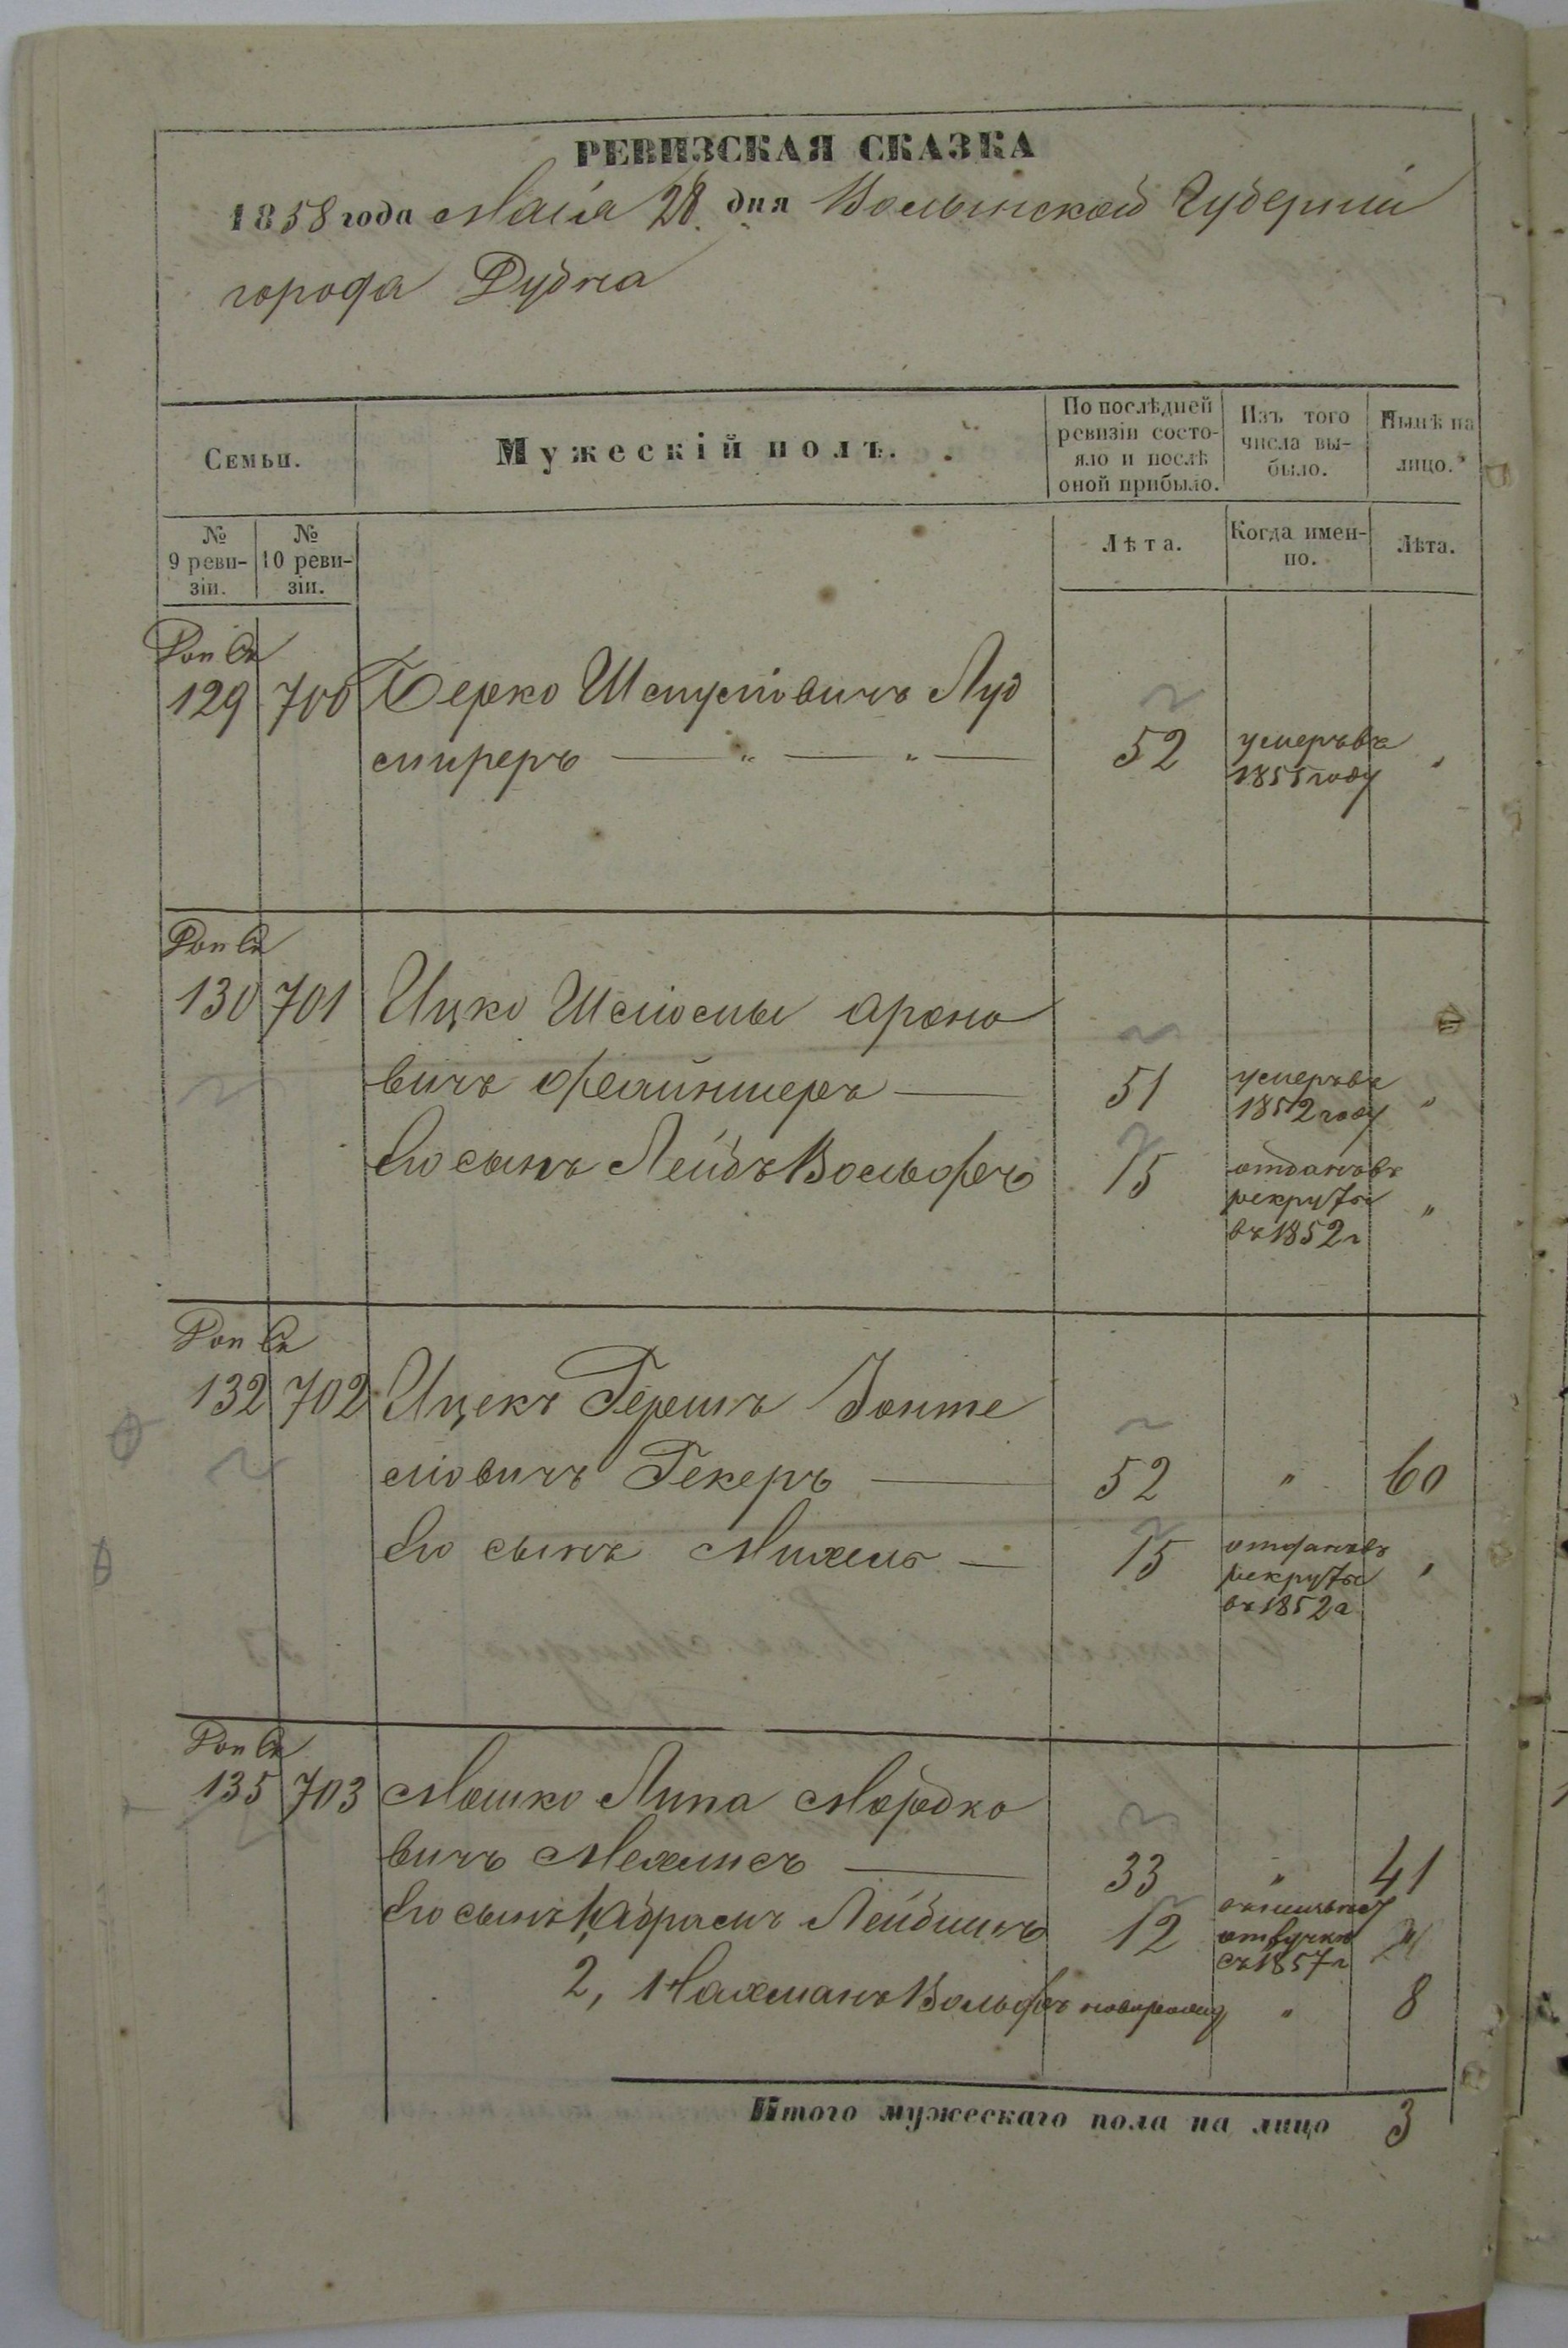 РЕВИЗСКАЯ СКАЗКА
1858 года Маія 28 дня Волынской Губерніи
города Дубна
Семьи.
Мужескій полъ.
По послѣдней ревизіи состояло и послѣ оной прибыло.
Изъ того числа выбыло.
Нынѣ на лицо.
№ 9 ревизіи.
№ 10 ревизіи.
Лѣта.
Когда именно.
Лѣта.
129 700 Берко Шмулiовичъ Луд
миреръ 52 умеръ въ 1855 году "
130 701 Ицко Шліомы Ароно
вичъ Файншеръ 51 умеръ въ 1852 году "
Его сынъ Лейбъ Вольфъ 15 отданъ въ рекруты въ 1852 г "
132 702 Ицекъ Гершъ Зонте
ліовичъ Гекеръ 52 " 60
Его сынъ Михель 15 отданъ въ рекруты въ 1852 г "
135 703 Мошко Липа Мордко
вичъ Мехлисъ 33 " 41
Его сынъ 1, Абрамъ Лейбишъ 12 отлучкѣ съ 1857 г
2, Нахманъ Вольфъ новорожд " 8
Итого мужескаго пола на лицо 3